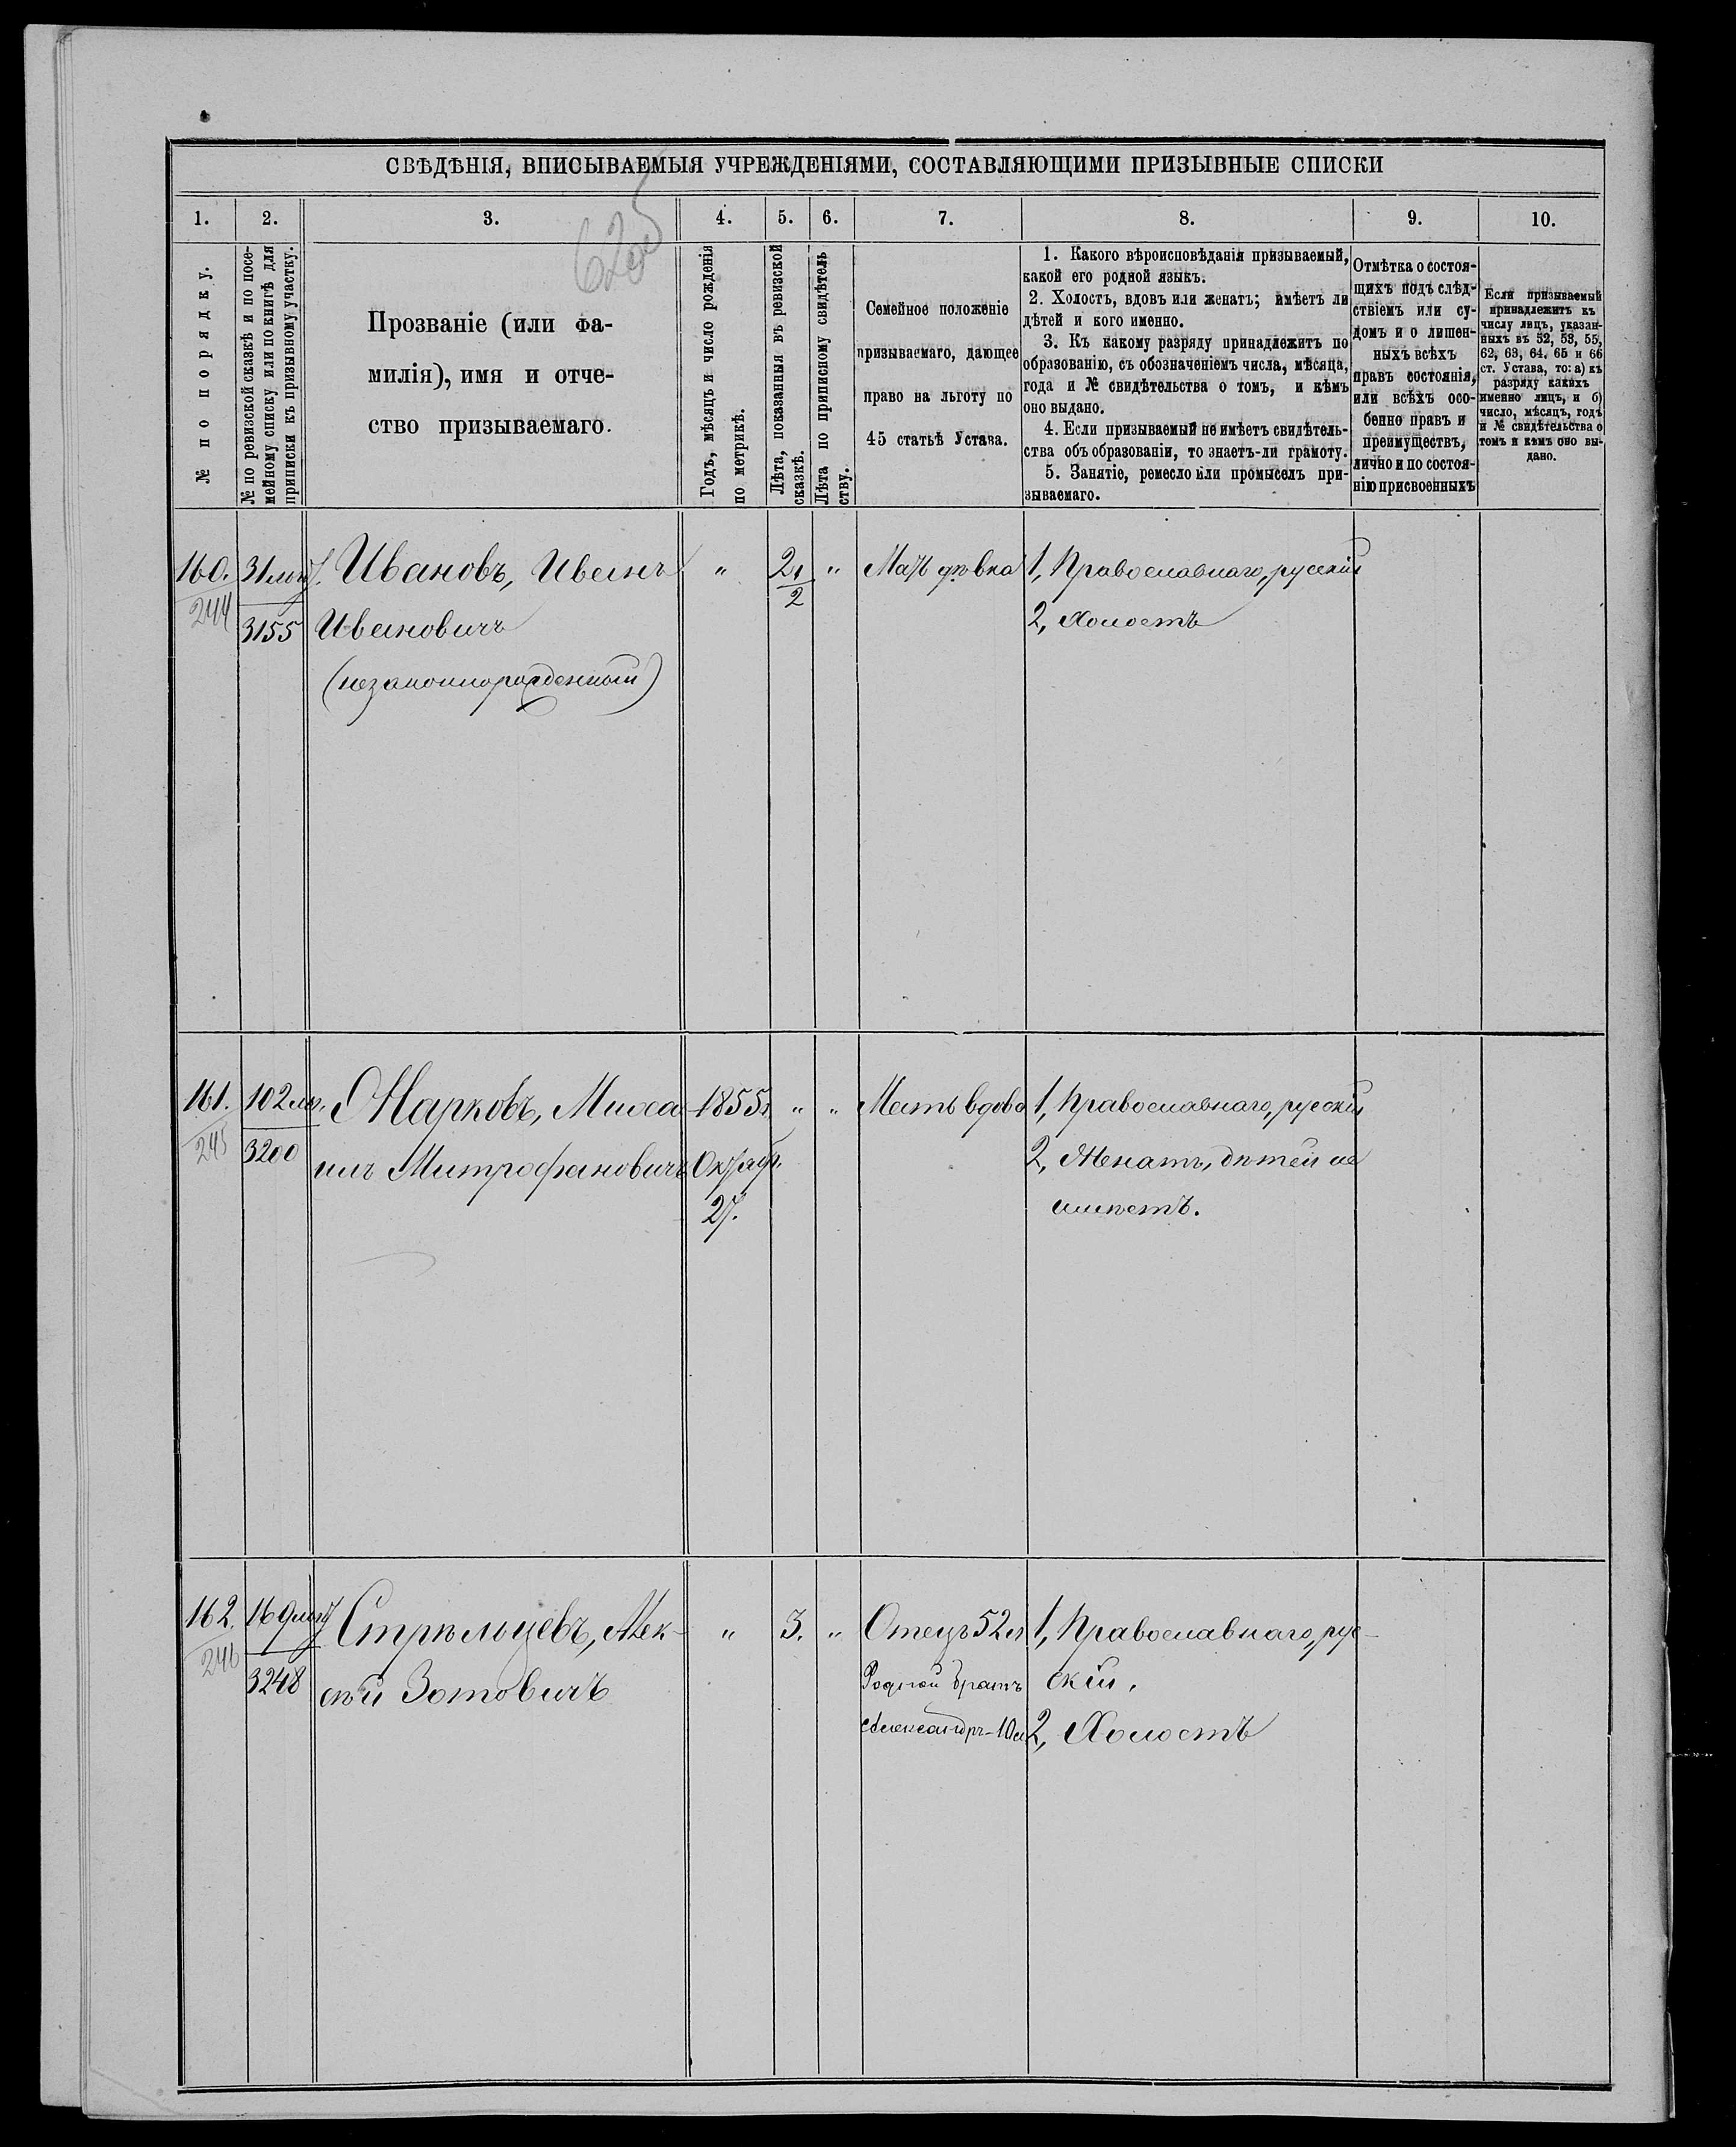 СВѢДѢНІЯ, ВПИСЫВАЕМЫЯ УЧРЕЖДЕНІЯМИ, СОСТАВЛЯЮЩИМИ ПРИЗЫВНЫЕ СПИСКИ
1. 2. 3. 4. 5. 6. 7. 8. 9. 10.
№ по порядку.
№ по ревизской сказкѣ и по посе-
мейному списку или по книгѣ для
приписки къ призывному участку.
Прозваніе (или фа-
милія), имя и отче-
ство призываемаго.
Годъ, мѣсяцъ и число рожденія
по метрикѣ.
Лѣта, показанныя въ ревизской
сказкѣ.
Лѣта по приписному свидѣтель
ству.
Семейное положеніе
призываемаго, дающее
право на льготу по
45 статьѣ Устава.
1. Какого вѣроисповѣданія призываемый,
какой его родной языкъ.
2. Холостъ, вдовъ или женатъ; имѣетъ ли
дѣтей и кого именно.
3. Къ какому разряду принадлежитъ по
образованію, съ обозначеніемъ числа, мѣсяца,
года и № свидѣтельства о томъ, и кѣмъ
оно выдано.
4. Если призываемый не имѣетъ свидѣтель-
ства объ образованіи, то знаетъ-ли грамоту.
5. Занятіе, ремесло или промыселъ при-
зываемаго.
Отмѣтка о состоя-
щихъ подъ слѣд-
ствіемъ или су-
домъ и о лишен-
ныхъ всѣхъ
правъ состоянія,
или всѣхъ осо-
бенно правъ и
преимуществъ,
лично и по состоя-
нію присвоенныхъ
Если призываемый
принадлежитъ къ
числу лицъ, указан-
ныхъ въ 52, 53, 55,
62, 63, 64. 65 и 66
ст. Устава, то: а) къ
разряду какихъ
именно лицъ, и б)
число, мѣсяцъ, годъ
и № свидѣтельства о
томъ и кѣмъ оно вы-
дано.
160. Ивановъ, Иванъ " 2 1/2 " Мать дѣвка 1, Православнаго, русскій
244 3155 Ивановичъ 2, Холостъ
(незаконнорожденный)
161. Марковъ, Миха 1855 г. " " Мать вдова 1, Православнаго, русскій
245 3200 илъ Митрофановичъ Октябр. 2, Женатъ, дѣтей не
27. имѣетъ.
162. Стрѣльцевъ, Алек- " 3. " Отецъ 52 л 1, Православнаго, рус-
246 3248 сѣй Зотовичъ Родной братъ скій,
Александръ-10 л 2, Холостъ